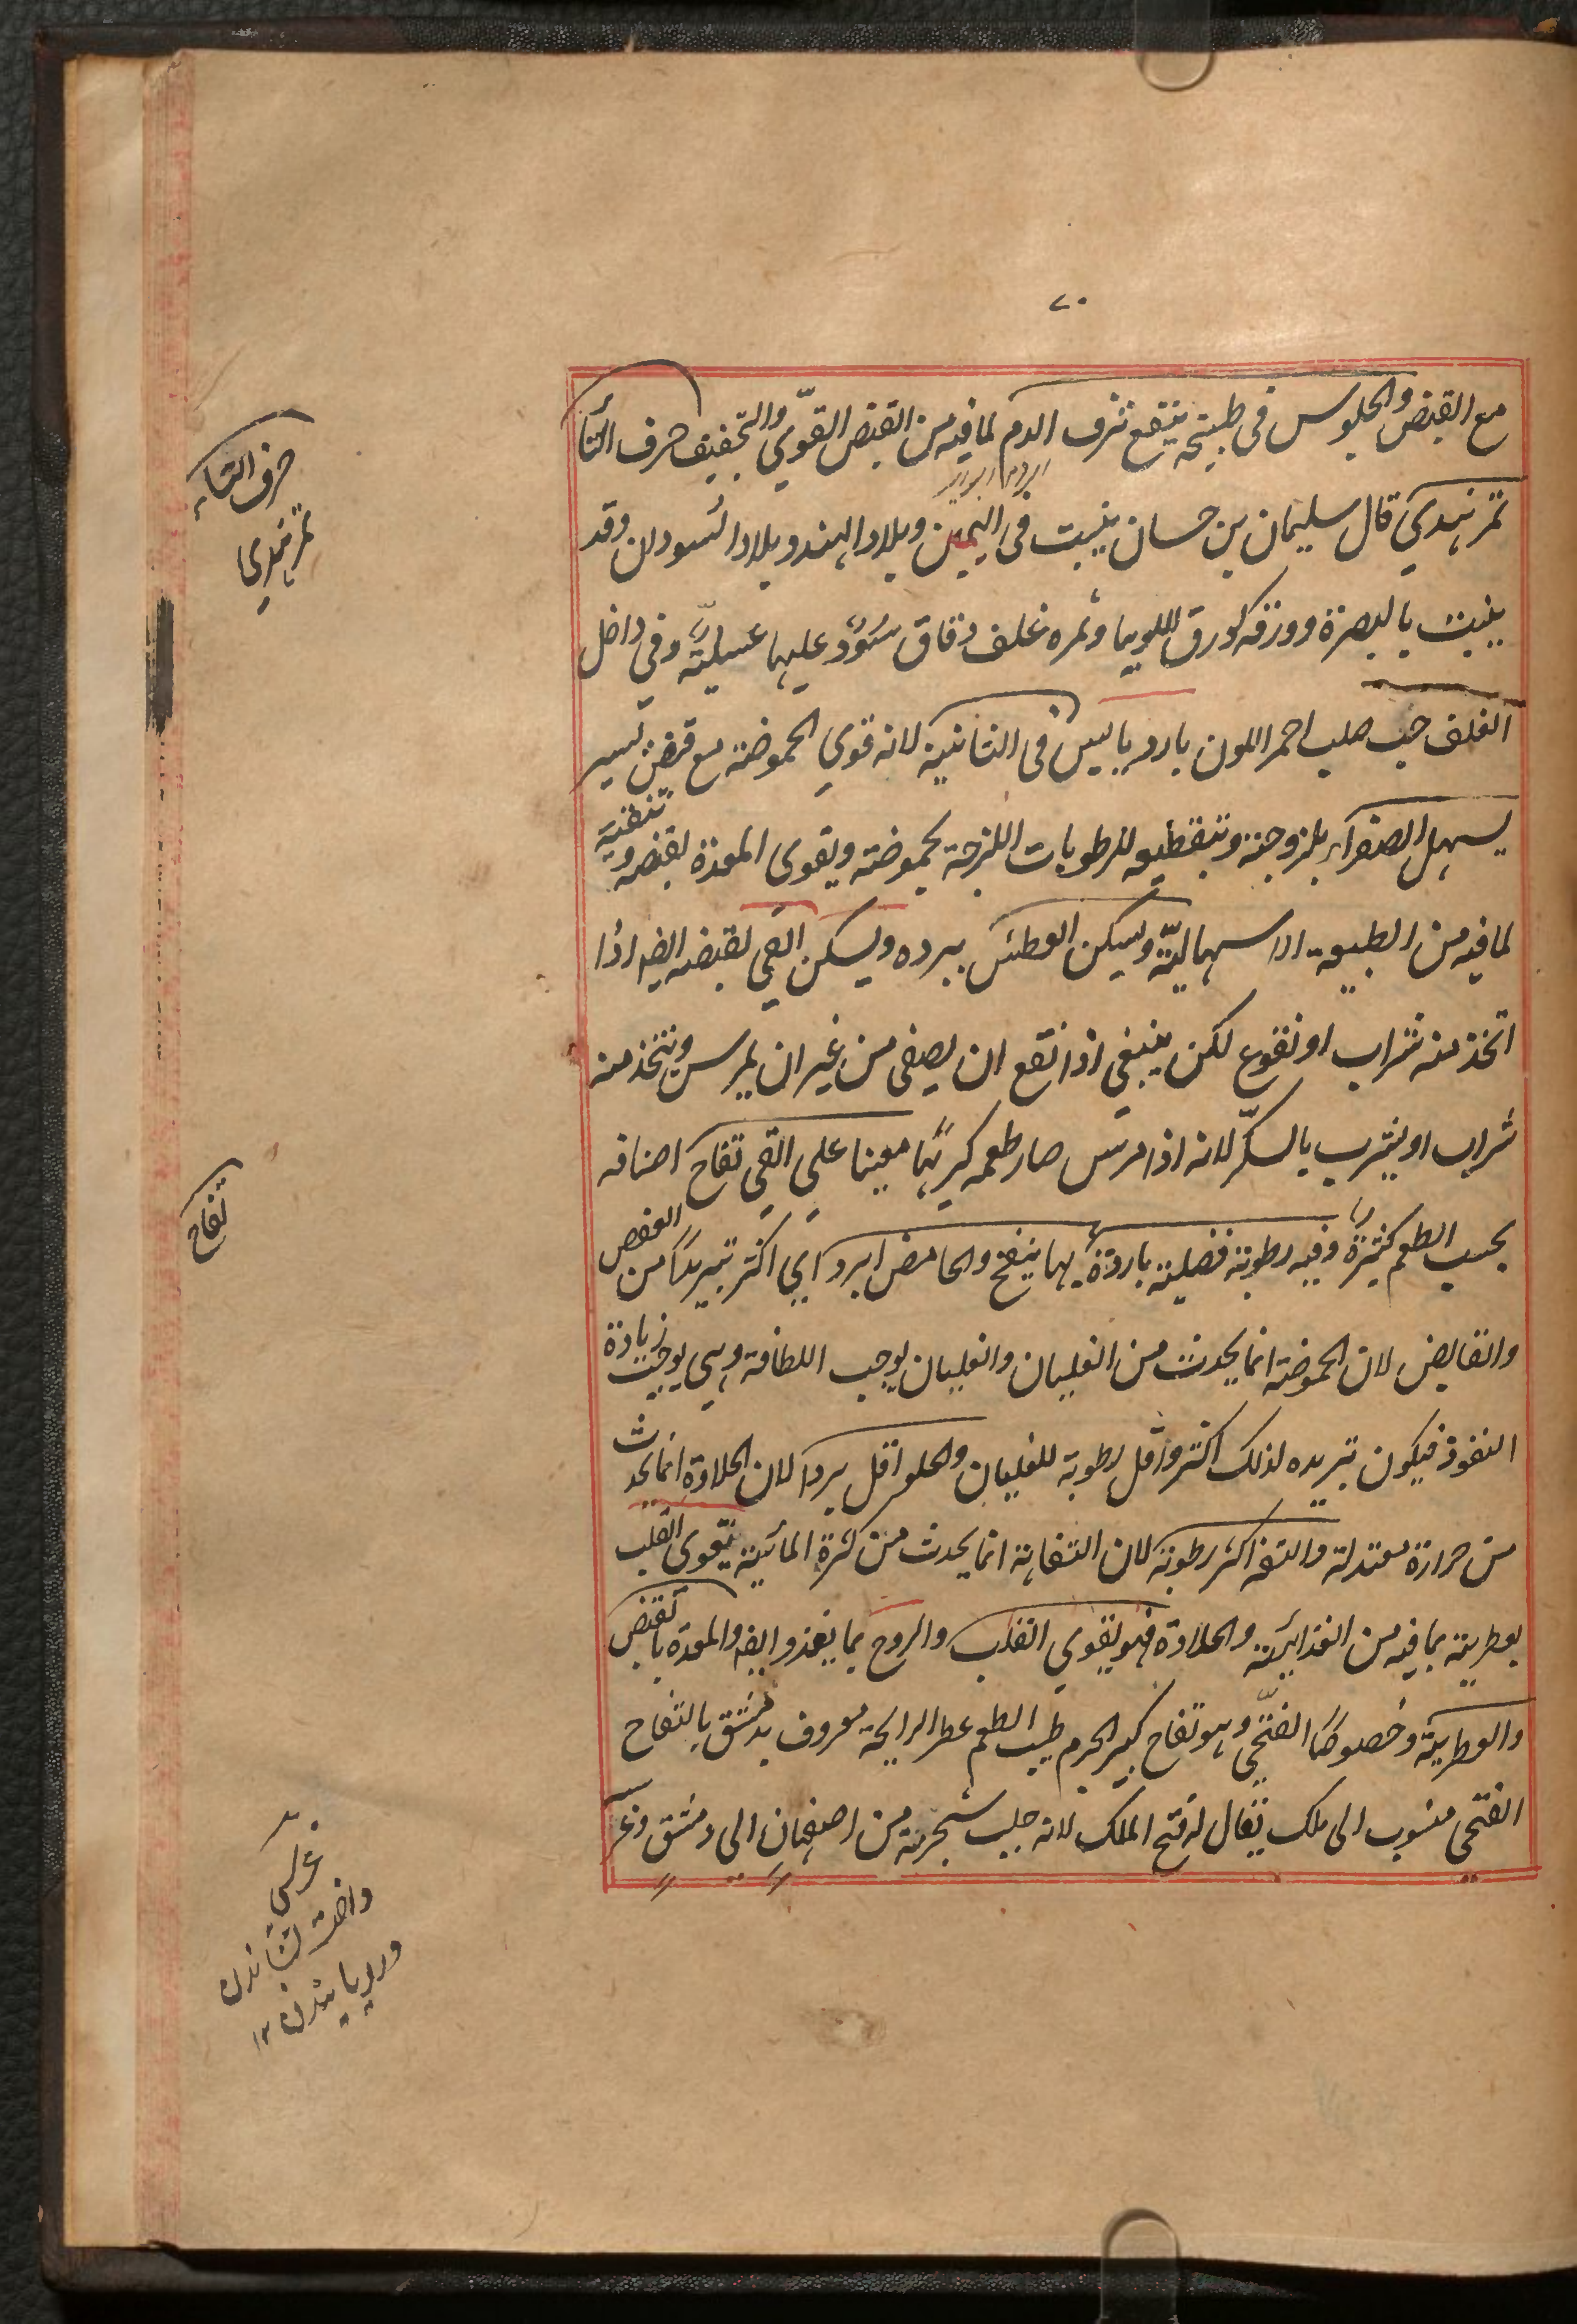 ٧٠
مع القبض والجلوس فى طبيخه ينفع نزف الدم لما فيه من القبض القوّي والتجفيف حرف التأ
تمر هندي قال سليمان بن حسان ينبت فى اليمن وبلاد الهند وبلاد السودان وقد
ينبت بالبصرة وورقه كورق اللوبيا وثمره غلف دقاق سُوْدٌ عليها عسليّة وفي داخل
الغلف حب صلب احمر اللون بارد يابس فى الثانية لانه قوي الحموضة مع قبض يسير
يسهل الصفرآء بلزوجته وتقطيعه للرطوبات اللزجة بحموضته ويقوى المعدة بقبضه وتنقيته
لما فيه من الطبيعة الاسهاليّة ويسكن العطش ببرده ويسكن القي لقبضه ايضه اذا
اتخذ منه شراب او نقوع لكن ينبغي اذا نقع ان يصفى من غير ان يمرس ويتخذ منه
شراب او يشرب بالسكّر لانه اذا مرس صار طعمه كريهًا معينا على القي تفاح اصنافه
بحسب الطعم كثيرةٌ وفيه رطوبة فضلية باردة بها ينفخ والحامض ابرد اي اكثر تبريدًا من العفص
والقابض لان الحموضة انما يحدث من الغليان والغليان يوجب اللطافة وهي يوجب زيادة
النفوذ فيكون تبريده لذلك اكثر واقل رطوبة للغليان والحلو اقل بردا لان الحلاوة انما يحدث
من حرارة معتدلة والتفه اكثر رطوبة لان التفاهة انما يحدث من كثرة المائية يقوى القلب
بعطريته بما فيه من الغذائية والحلاوة فهو يقوي القلب والروح بما يغذو ايضه والمعدة بالقبض
والعطرية وخصوصًا الفتّحي وهو تفاح كبير الجرم طيب الطعم عطر الرايحة معروف بدمشق بالتفاح
الفتحي منسوب الى ملك يقال له فتح الملك لانه جلب شجرته من اصفهان الى دمشق وغر
حرف التآء
تمر هندي
تفاح